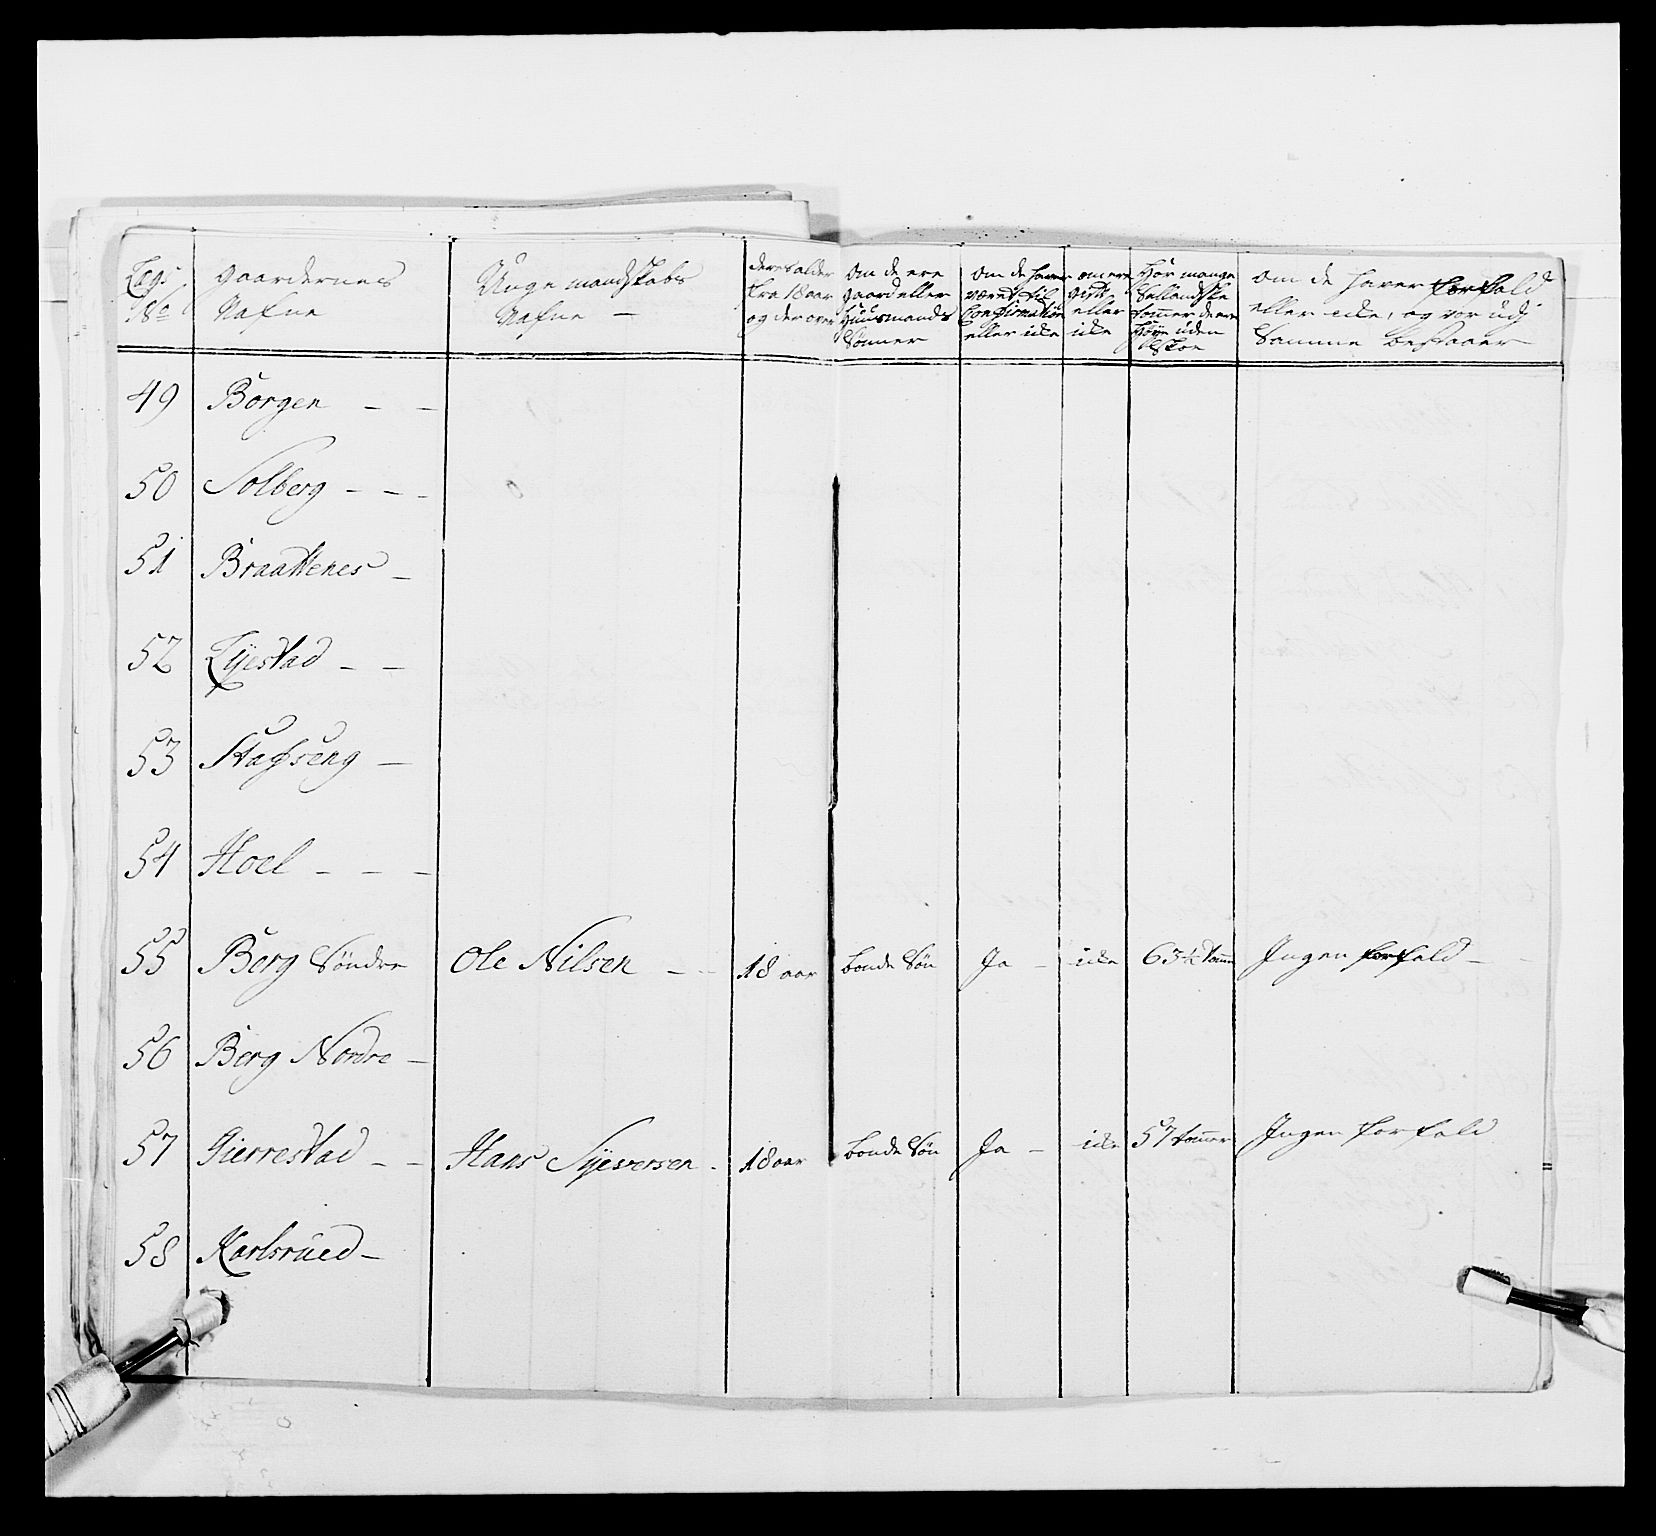 Legs No
Gaardernes Nafne
Unge mandskabs Nafne —
deres alder fra 18 aar og der over
Om de ere gaard eller Huusmands Sønner
Om de haver været til Confirmation eller icke
om ere gift eller icke
Hvor mange Sællandske tommer de ere Høye uden Skoe
Om de haver forfald eller icke, og vor udj Samme bestaaer
49 Borgen — —
50 Solberg — — —
51 Braattenes —
52 Lyestad — —
53 Hagseng —
54 Hoel — — —
55 Berg Søndre Ole Nilsen — — 18 aar bonde Søn Ja — icke 63 1/2 tomme Ingen forfald — —
56 Berg Nordre —
57 Gierrestad — — Hans Syversen . 18 aar bonde Søn Ja — icke 57 tommer Ingen forfald
58 Karlsrued —